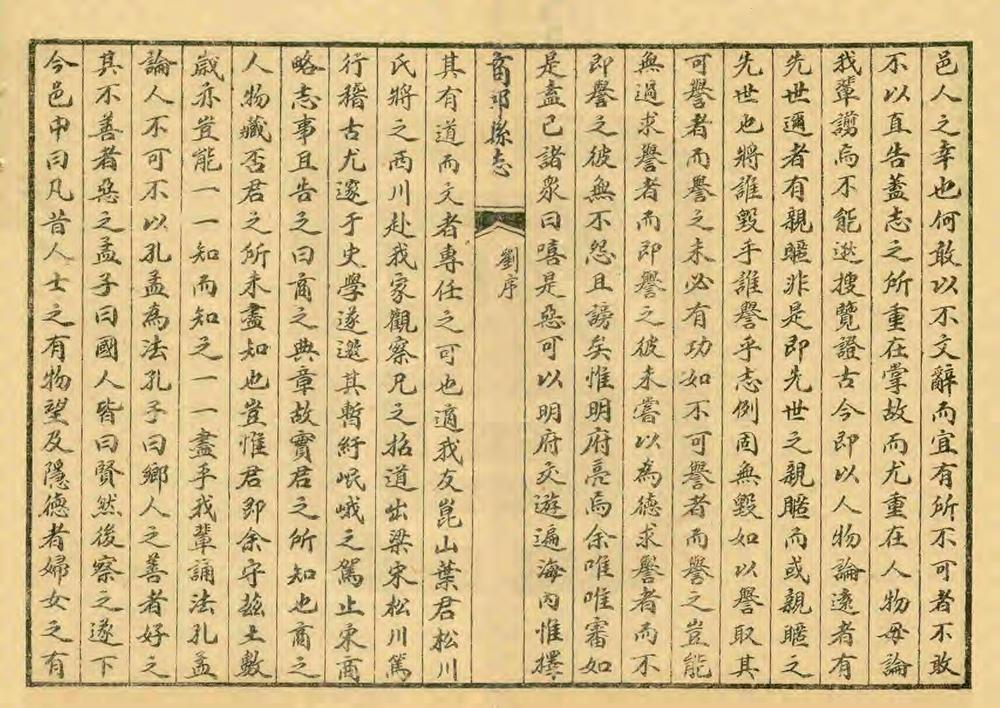 邑人之幸也何敢以不文辭而宜有所不可者不敢
不以直告蓋志之所重在掌故而尤重在人物毋論
我輩謭焉不能遐搜覽證古今即以人物論遠者有
先世邇者有親暱非是即先世之親暱而或親暱之
先世也將誰毀乎誰譽乎志例固無毀如以譽取其
可譽者而譽之未必有功如不可譽者而譽之豈能
無過求譽者而即譽之彼未嘗以為德求譽者而不
即譽之彼無不怨且謗矣惟明府亮焉余唯唯審如
是盍已諸衆曰嘻是惡可以明府交遊遍海內惟擇
商邱縣志
劉序
其有道而文者專任之可也適我友崑山葉君松川
氏將之西川赴我家觀察兄之招道出梁宋松川篤
行稽古尤邃于史學遂邀其暫紆岷峨之駕止東商
略志事且告之曰商之典章故實君之所知也商之
人物臧否君之所未盡知也豈惟君即余守茲土數
歲亦豈能一一知而知之一一盡乎我輩誦法孔孟
論人不可不以孔孟為法孔子曰鄉人之善者好之
其不善者惡之孟子曰國人皆曰賢然後察之遂下
今邑中曰凡昔人士之有物望及隱德者婦女之有